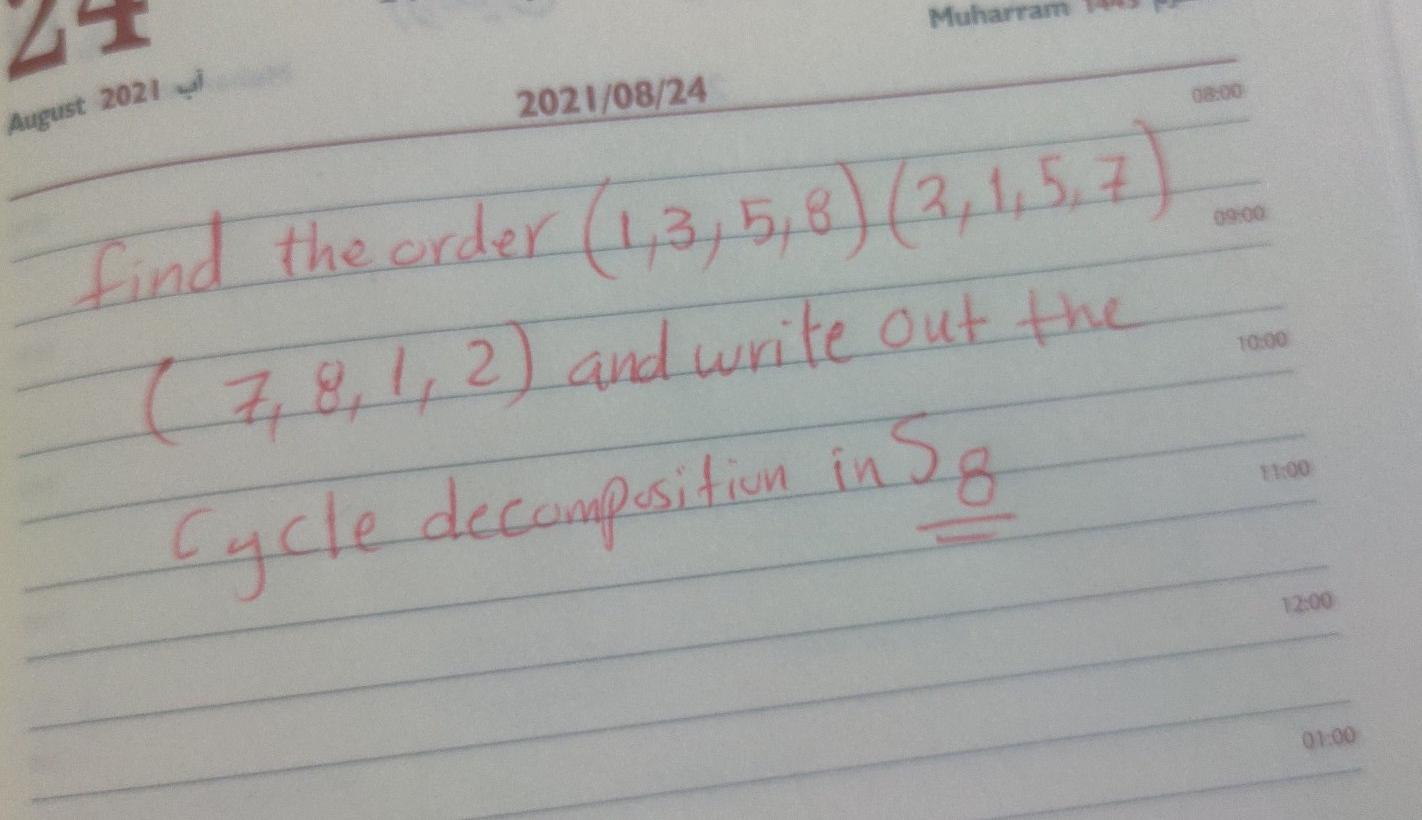 24
Muharram 1443
August 2021 آب
2021/08/24
08:00
find the order (1,3,5,8)(2,1,5,7)
09:00
(7,8,1,2) and write out the
10:00
Cycle decomposition in S8
11:00
12:00
01:00